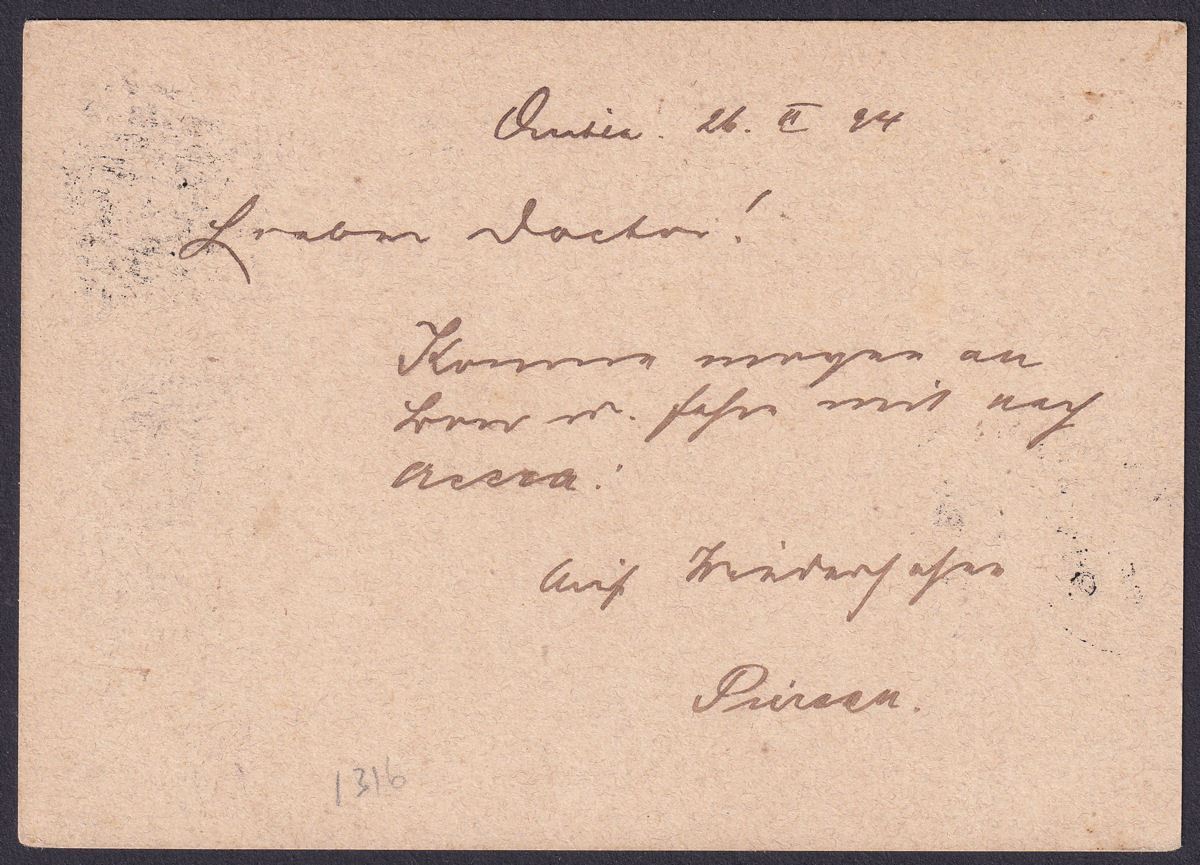 26. II 94
Lieber Doctor!
Komme morgen an
Bord u. fahre mit nach
Accra!
Auf Wiedersehen
1316